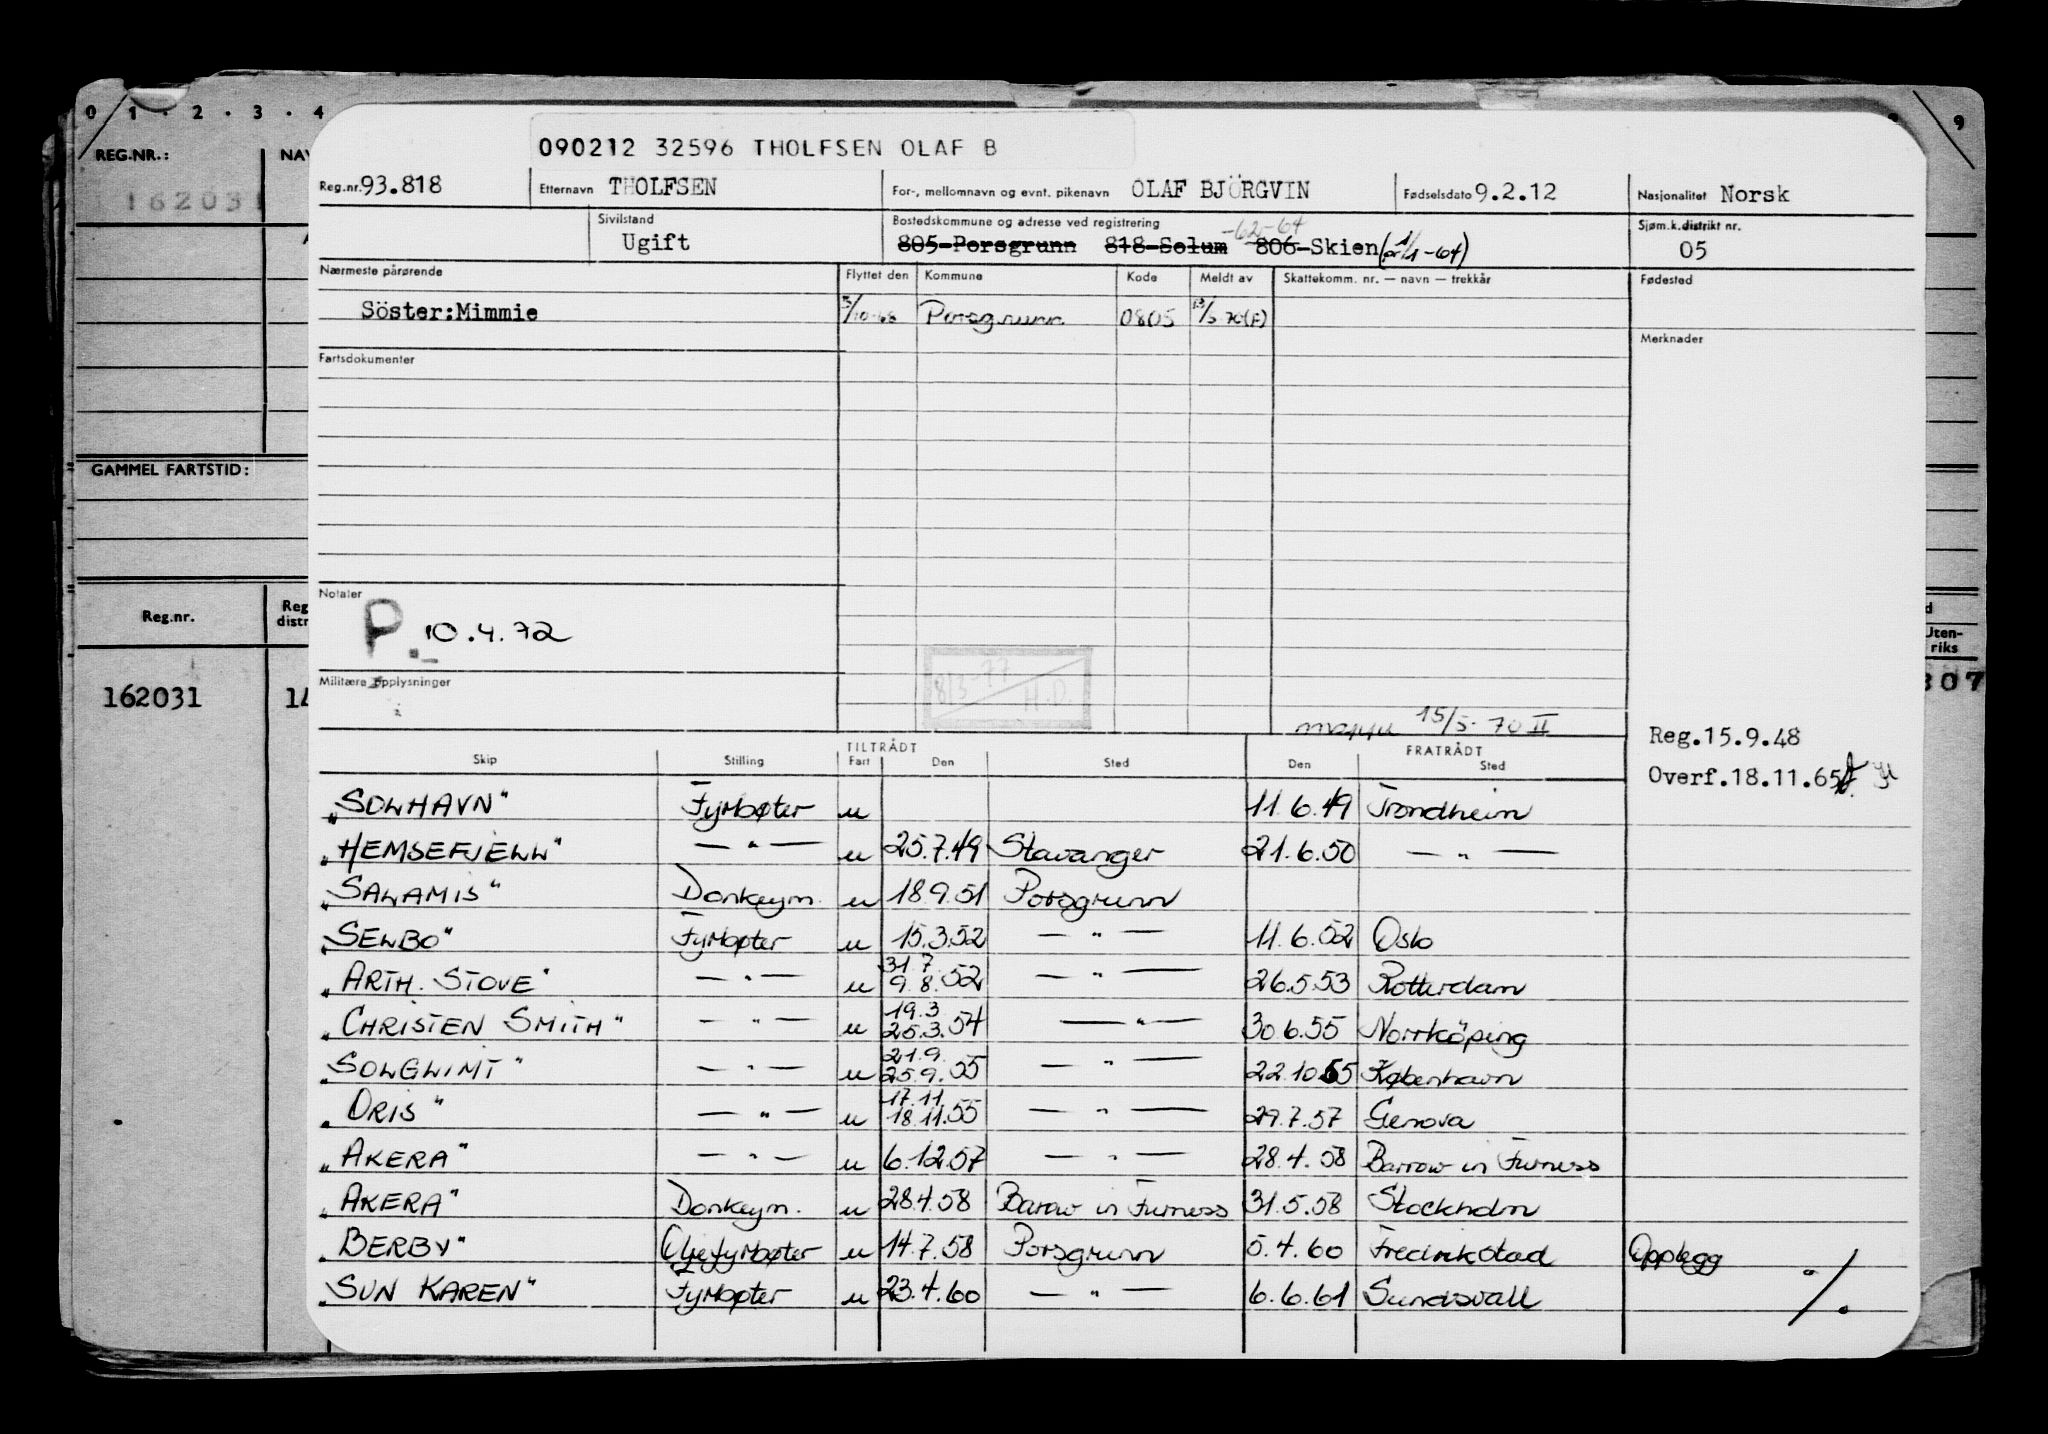 0 1 . 2 . 3 . 4 9
REG.NR.: NAV
162031
GAMMEL FARTSTID:
Reg.nr. Reg distr
162031 14
d
Uten-
riks
307
090212 32596 THOLFSEN OLAF B
Reg.nr. 93.818 Etternavn THOLFSEN For-, mellomnavn og evnt. pikenavn OLAF BJÖRGVIN Fødselsdato 9.2.12 Nasjonalitet Norsk
Sivilstand Ugift Bostedskommune og adresse ved registrering Sjøm.k.distrikt nr. 05
-62-64
805-Porsgrunn 818-Solum 806-Skien
Nærmeste pårørende Flyttet den Kommune Kode Meldt av Skattekomm. nr. — navn — trekkår Fødested
Söster:Mimmie 5/10-68 Porsgrunn 0805 13/5-70(F)
Fartsdokumenter Merknader
Notater
P. 10.4.72
Militære opplysninger
8/3-77 H.D.
mappe 15/5-70 II
Reg.15.9.48
Overf.18.11.65
TILTRÅDT FRATRÅDT
Skip Stilling Fart Den Sted Den Sted
"SOLHAVN" Fyrbøter u 11.6.49 Trondheim
"HEMSEFJELL" — " — u 25.7.49 Stavanger 21.6.50 — " —
"SALAMIS" Donkeym. u 18.9.51 Porsgrunn
"SELBO" Fyrbøter u 15.3.52 — " — 11.6.52 Oslo
"ARTH. STOVE" — " — u 31.7 9.8.52 — " — 26.5.53 Rotterdam
"CHRISTEN SMITH" — " — u 19.3 25.3.54 — " — 30.6.55 Norrköping
"SOLGLIMT" — " — u 21.9. 25.9.55 — " — 22.10.55 København
"ORIS" — " — u 17.11 18.11.55 — " — 29.7.57 Genova
"AKERA" — " — u 6.12.57 — " — 28.4.58 Barrow in Furness
"AKERA" Donkeym. u 28.4.58 Barow in Furness 31.5.58 Stockholm
"BERBY" Oljefyrbøter u 14.7.58 Porsgrunn 5.4.60 Fredrikstad Opplegg
"SUN KAREN" Fyrbøter u 23.4.60 — " — 6.6.61 Sundsvall ./.